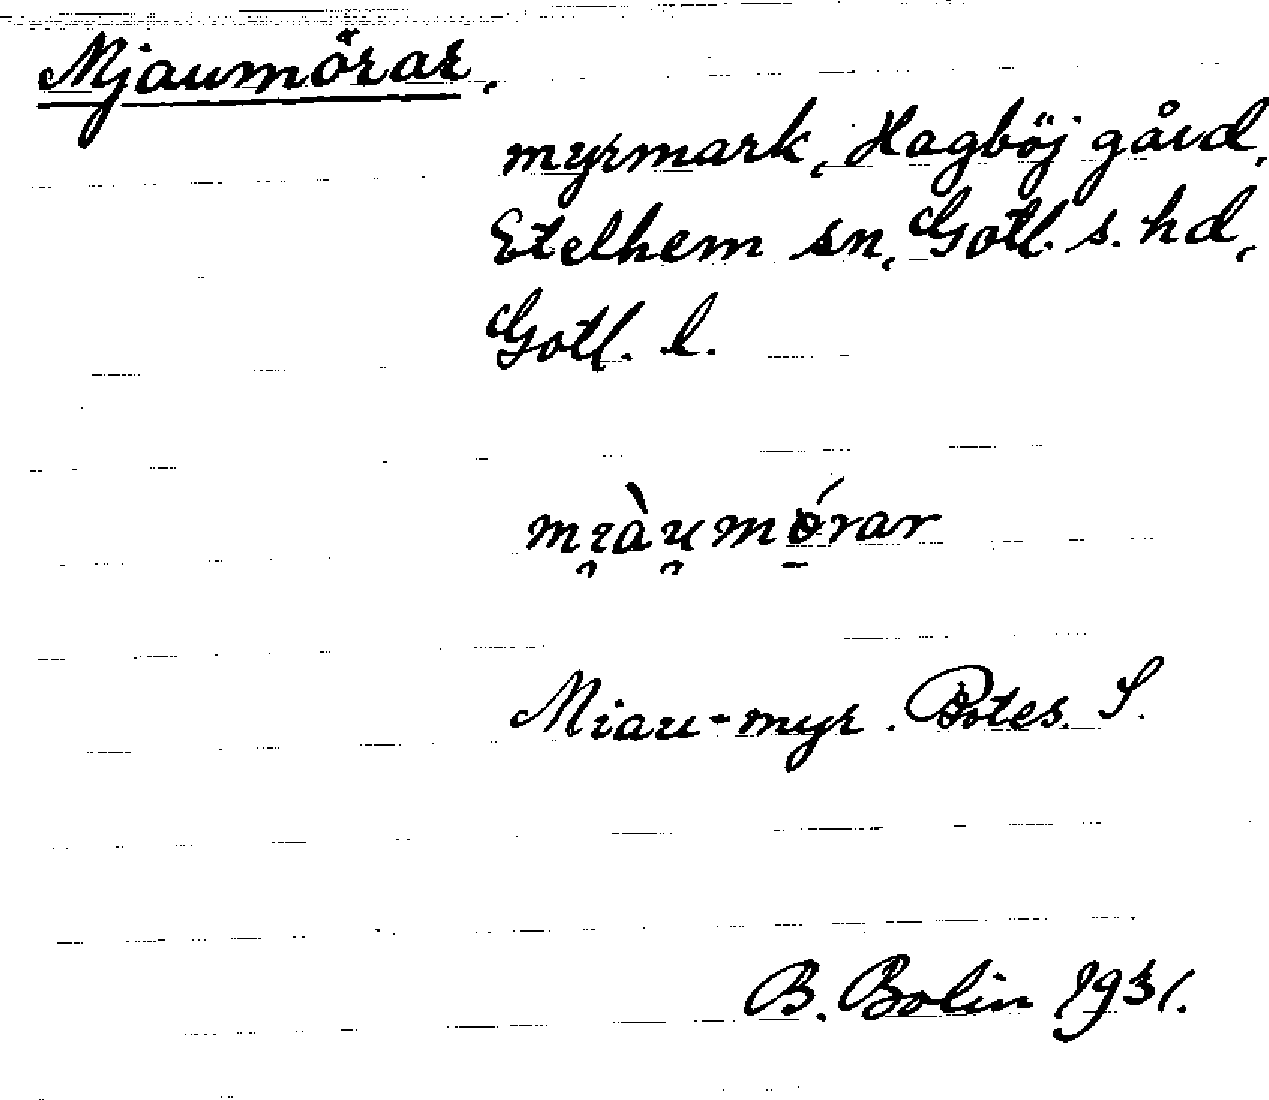 Mjaumörar,
myrmark, Hagböj gård,
Etelhem sn, Gotl. s. hd,
Gotl. l.
mı̯àu̯mó̱rar
Miau-myr. Potes. S.
B. Bolin 1931.